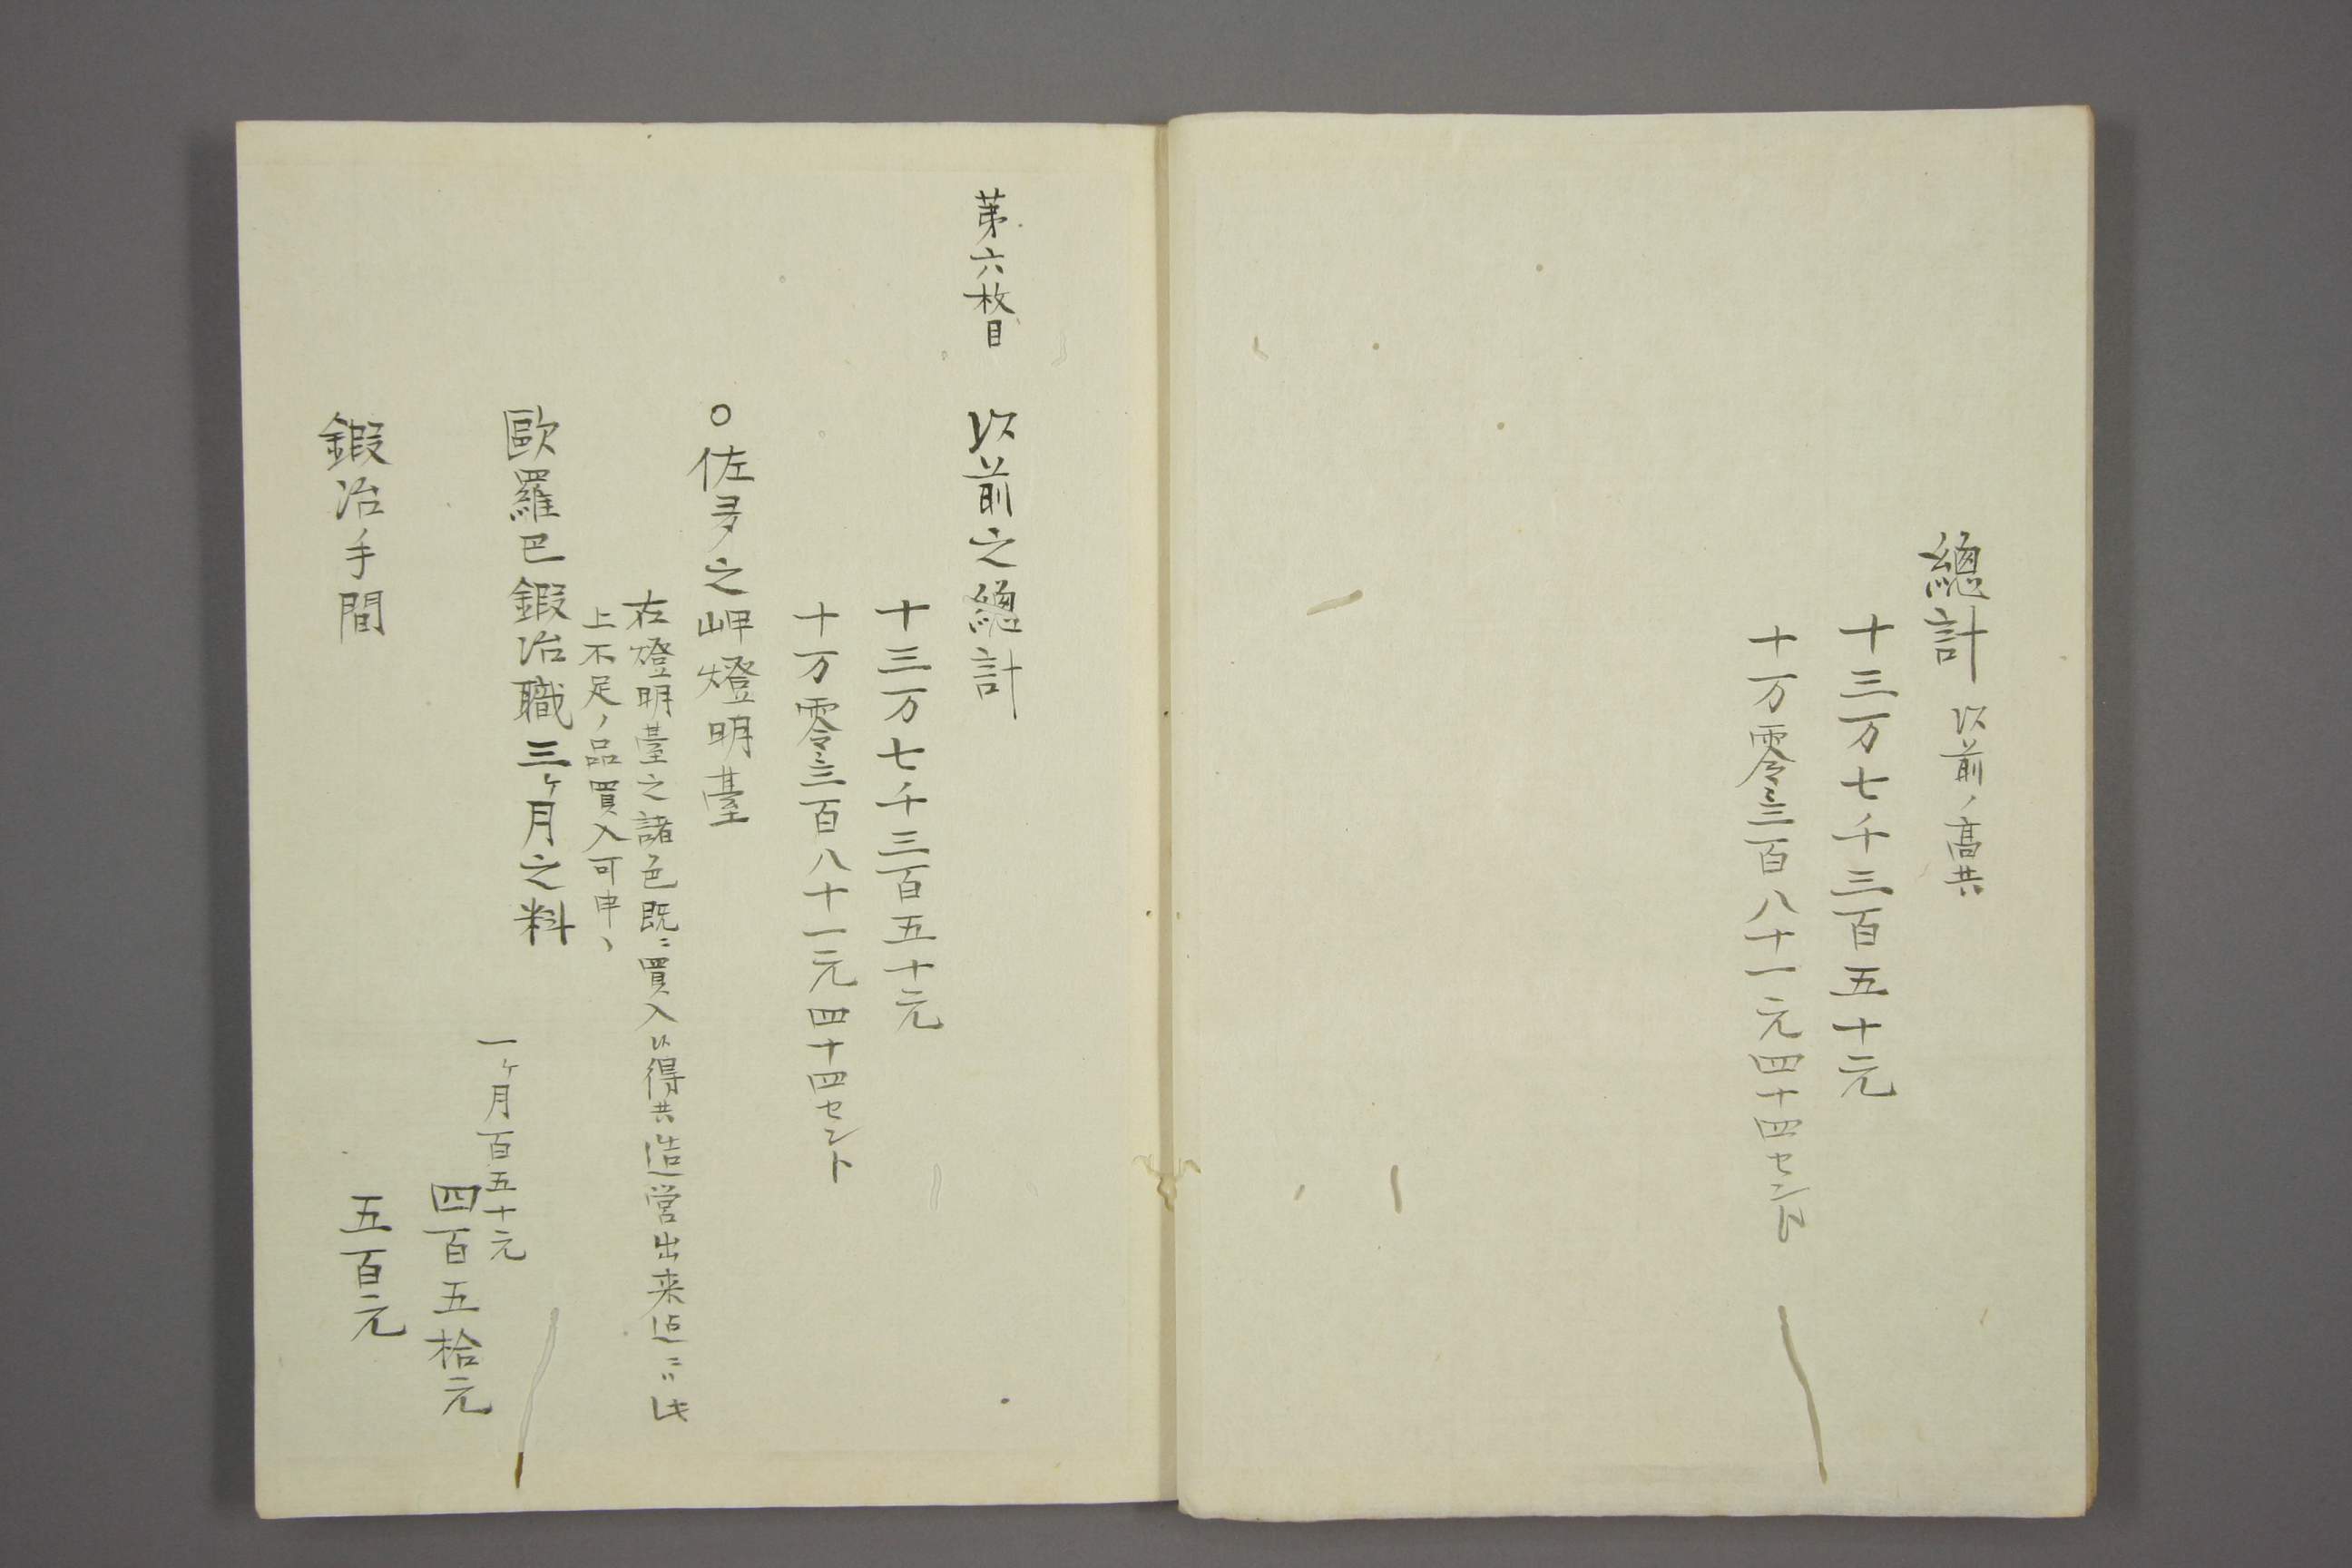 總計 以前ノ高共
十三万七千三百五十元
十万零三百八十一元四十四セント
第六枚目 以前之總計
十三万七千三百五十元
十万零三百八十一元四十四セント
○佐多之岬燈明臺
右燈明臺之諸色既ニ買入以得共造営出来迠ニハ
上不足ノ品買入可申、
歐羅巴鍛冶職三ケ月之料
一ケ月百五十元
四百五拾元
鍛冶手間
五百元